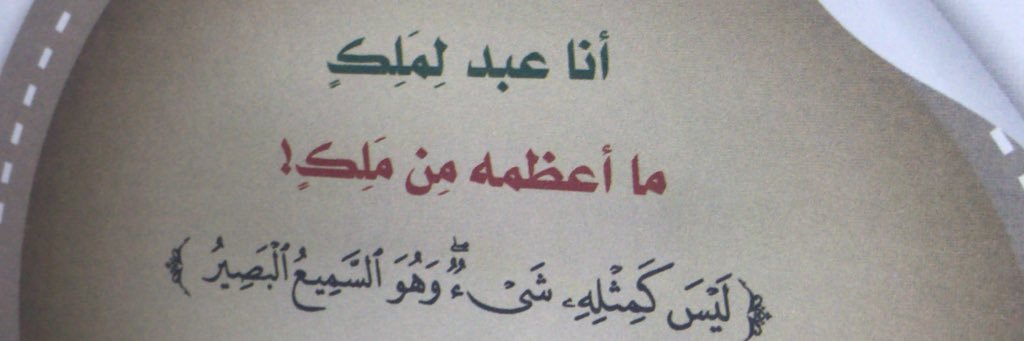 أنا عبد لِمَلِكٍ
ما أعظمه مِن مَلِكٍ!
﴿ لَيْسَ كَمِثْلِهِۦ شَىْءٌۭ ۖ وَهُوَ ٱلسَّمِيعُ ٱلْبَصِيرُ ﴾